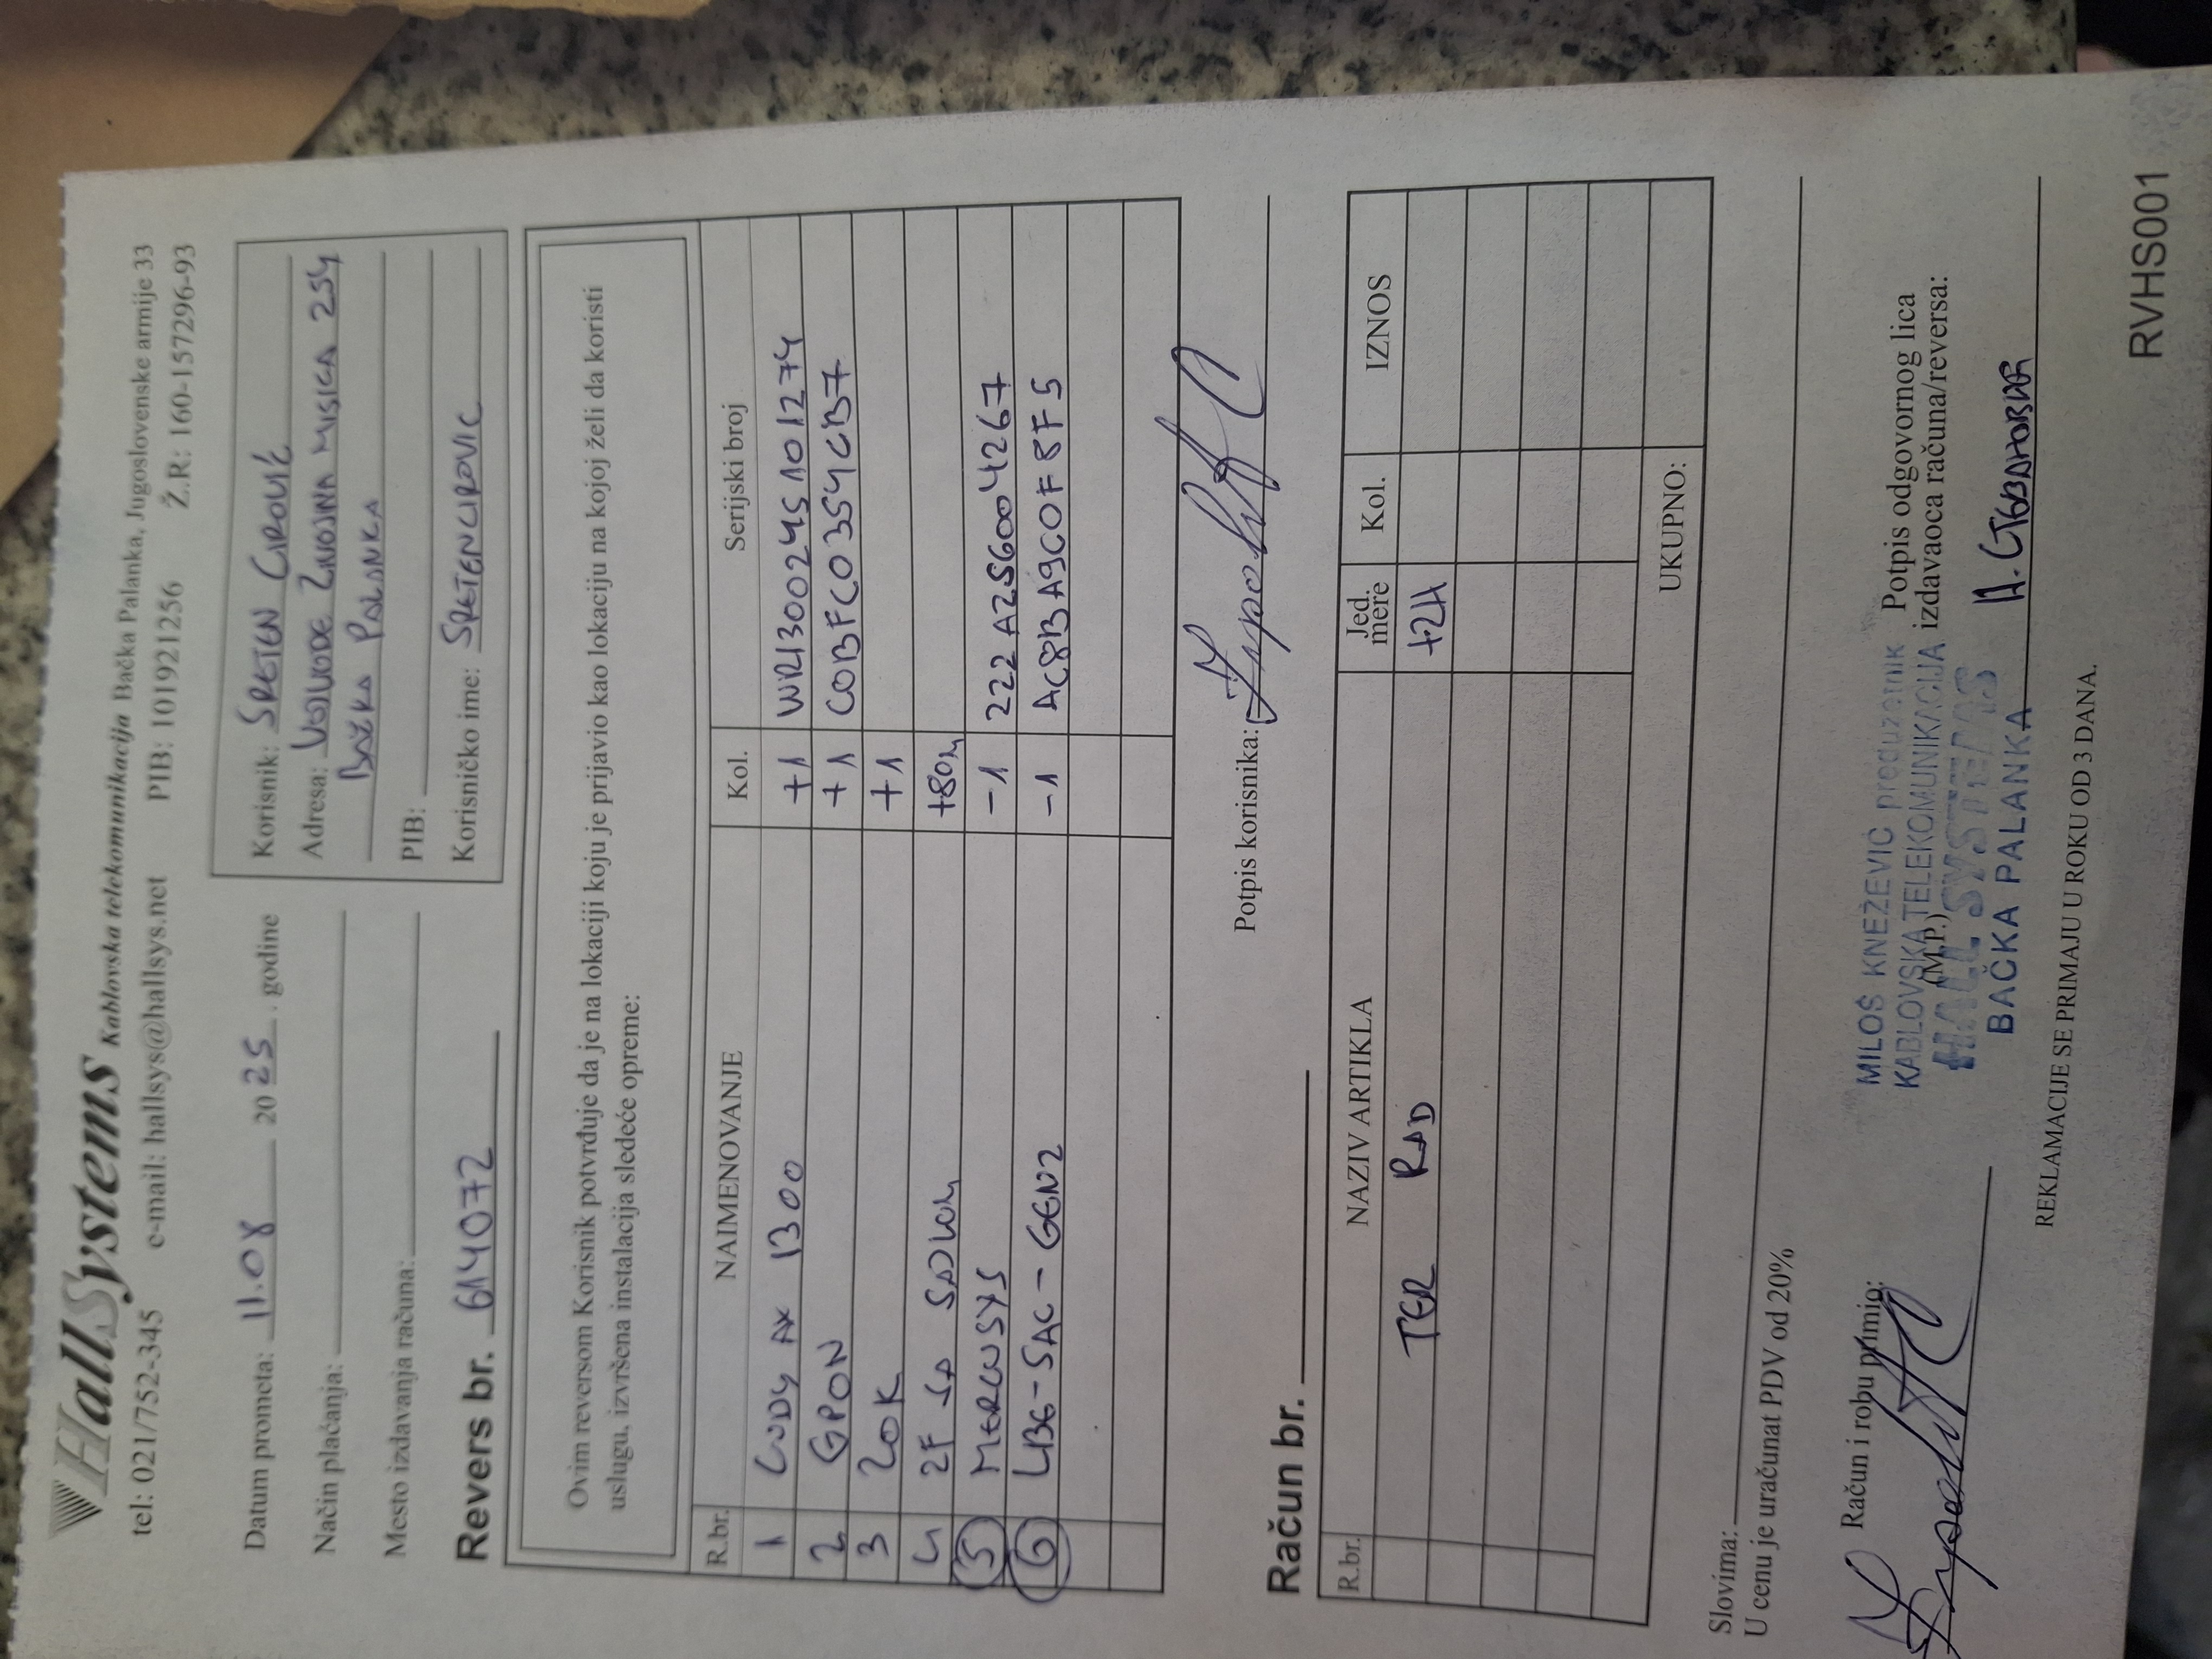 HallSystems Kablovska telekomunikacija Bačka Palanka, Jugoslovenske armije 33
tel: 021/752-345 e-mail: hallsys@hallsys.net PIB: 101921256 Ž.R: 160-157296-93
Datum prometa: 11.08 2025. godine
Način plaćanja:
Mesto izdavanja računa:
Revers br. 614072
Korisnik: SRETEN ĆIROVIĆ
Adresa: VOJVODE ŽIVOJINA MIŠIĆA 254
BAČKA PALANKA
PIB:
Korisničko ime: SRETENCIROVIC
Ovim reversom Korisnik potvrđuje da je na lokaciji koju je prijavio kao lokaciju na kojoj želi da koristi
uslugu, izvršena instalacija sledeće opreme:
R.br. NAIMENOVANJE Kol. Serijski broj
1 CUDY AX 1300 +1 WR1300245101274
2 GPON +1 C0BFC0354CB7
3 ZOK +1
4 2F SA SAJLOM +80m
5 MERCUSYS -1 222A2S6004267
6 LBE-5AC-GEN2 -1 AC8BA9C0F8F5
Potpis korisnika:
Račun br.
R.br. NAZIV ARTIKLA Jed. mere Kol. IZNOS
TER RAD +2H
UKUPNO:
Slovima:
U cenu je uračunat PDV od 20%
Račun i robu primio:
MILOŠ KNEŽEVIĆ preduzetnik
KABLOVSKA TELEKOMUNIKACIJA
(M.P.)
HALL SYSTEMS
BAČKA PALANKA
Potpis odgovornog lica
izdavaoca računa/reversa:
REKLAMACIJE SE PRIMAJU U ROKU OD 3 DANA.
RVHS001